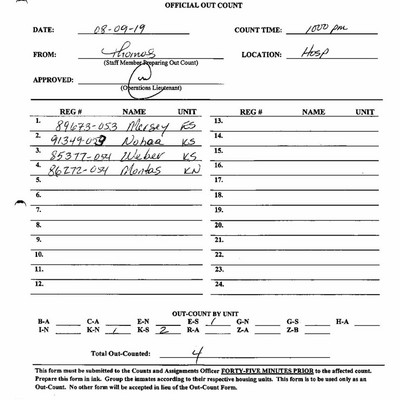 OFFICIAL OUT COUNT
DATE: 08-09-19 COUNT TIME: 1000 pm
FROM: Thomas LOCATION: Hosp
(Staff Member Preparing Out Count)
APPROVED:
(Operations Lieutenant)
REG # NAME UNIT REG # NAME UNIT
1. 89673-053 Mersey ES 13.
2. 91349-059 Nohaa KS 14.
3. 85377-054 Weber KS 15.
4. 86272-054 Montas KN 16.
5. 17.
6. 18.
7. 19.
8. 20.
9. 21.
10. 22.
11. 23.
12. 24.
OUT-COUNT BY UNIT
B-A C-A E-N E-S 1 G-N G-S H-A
I-N K-N 1 K-S 2 R-A Z-A Z-B
Total Out-Counted: 4
This form must be submitted to the Counts and Assignments Officer FORTY-FIVE MINUTES PRIOR to the affected count.
Prepare this form in ink. Group the inmates according to their respective housing units. This form is to be used only as an
Out-Count. No other form will be accepted in lieu of the Out-Count Form.